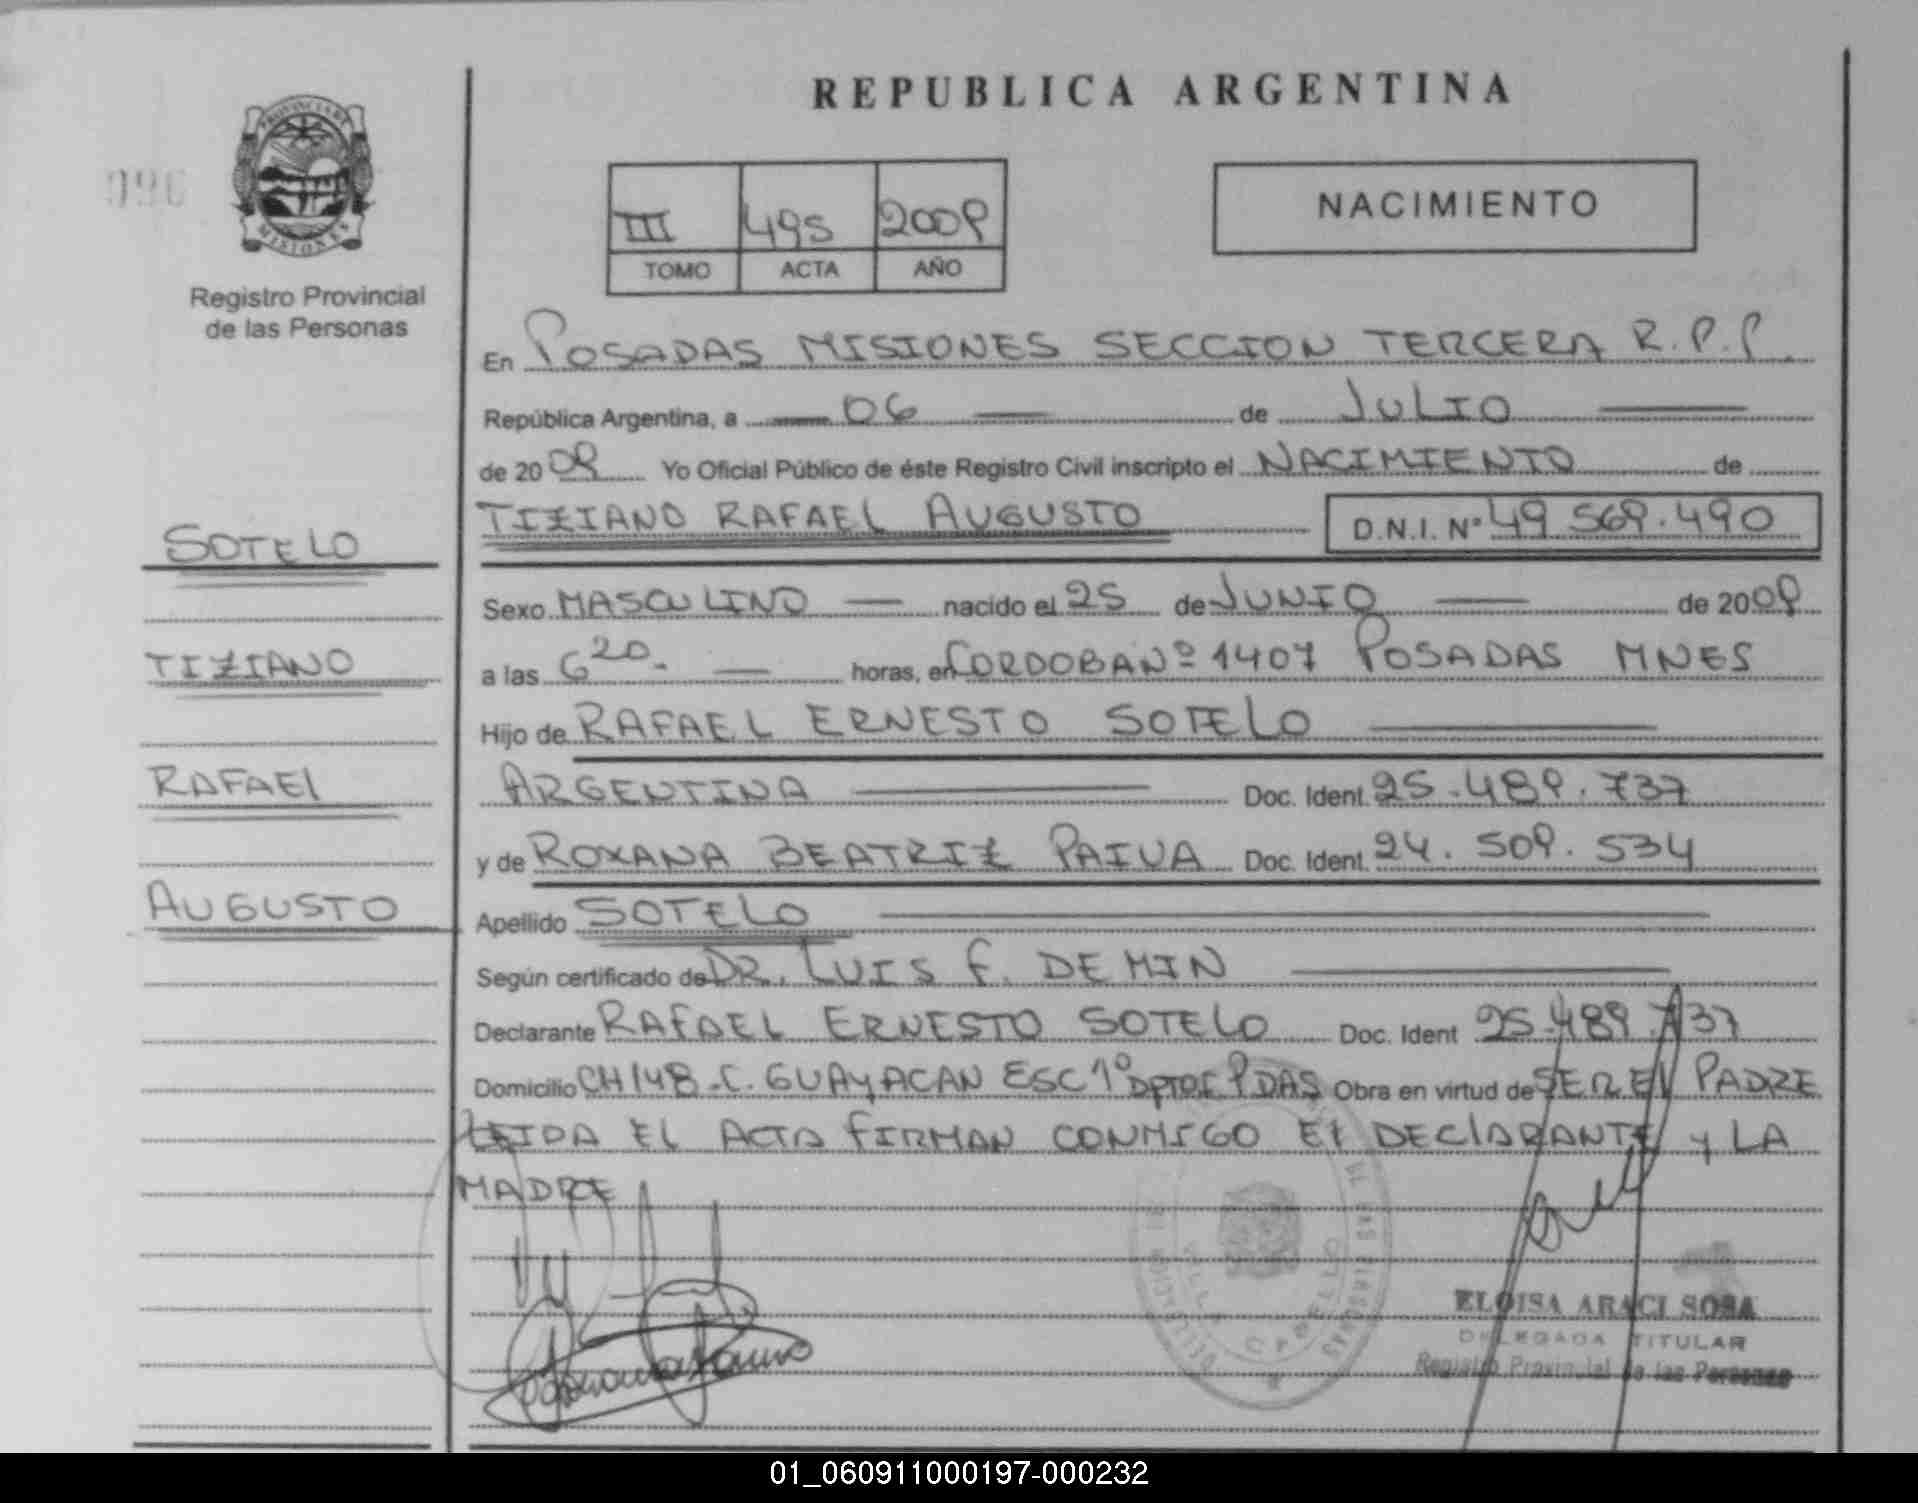 REPUBLICA ARGENTINA
PROVINCIA DE
MISIONES
090
Registro Provincial
de las Personas
III 495 2009
TOMO ACTA AÑO
NACIMIENTO
En POSADAS MISIONES SECCION TERCERA R.P.P.
República Argentina, a 06 de JULIO
de 2009 Yo Oficial Público de éste Registro Civil inscripto el NACIMIENTO de
TIZIANO RAFAEL AUGUSTO D.N.I. Nº 49.569.490
SOTELO
Sexo MASCULINO nacido el 25 de JUNIO de 2009
TIZIANO
a las 6 20. horas, en CORDOBA Nº 1407 POSADAS MNES
Hijo de RAFAEL ERNESTO SOTELO
RAFAEL
ARGENTINA Doc. Ident. 25.489.737
y de ROXANA BEATRIZ PAIVA Doc. Ident. 24.509.534
AUGUSTO
Apellido SOTELO
Según certificado de DR. LUIS F. DEMIN
Declarante RAFAEL ERNESTO SOTELO Doc. Ident 25.489.737
Domicilio CH 148 -C. GUAYACAN ESC 1º DPTO C PDAS Obra en virtud de SER EL PADRE
LEIDA EL ACTA FIRMAN CONMIGO EL DECLARANTE Y LA
MADRE
ELOISA ARACI SOSA
DELEGADA TITULAR
Registro Provincial de las Personas
01_060911000197-000232